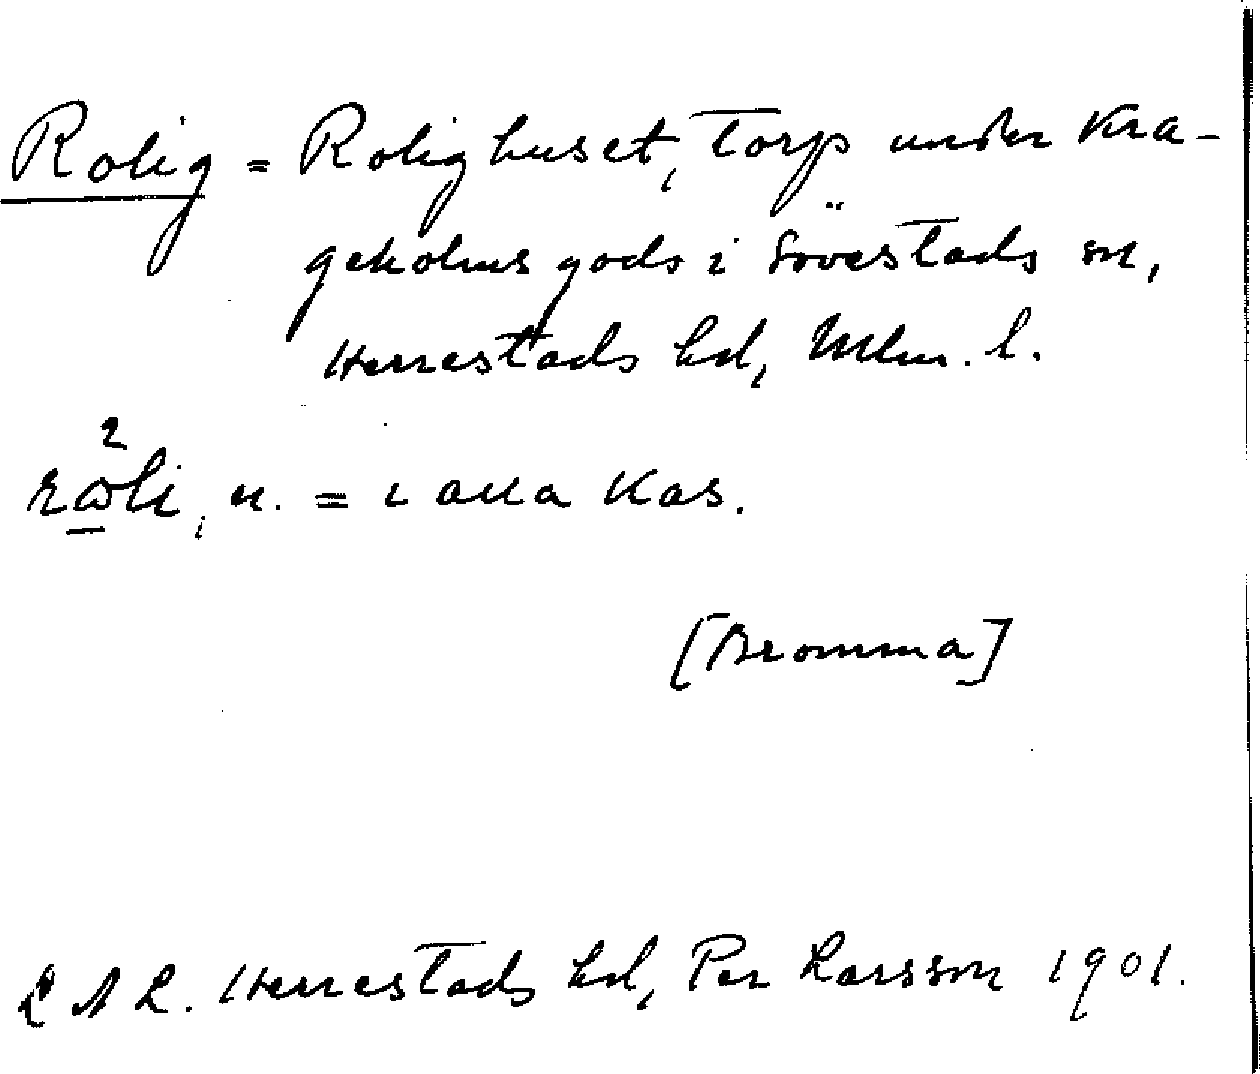 Rolig = Rolighuset, Torp under Kra-
geholms gods i Sövestads sn,
Herrestads hd, Mlm. l.
2
rωli, n. = i alla kas.
[Bromma]
LAL. Herrestads hd, Per Larsson 1901.